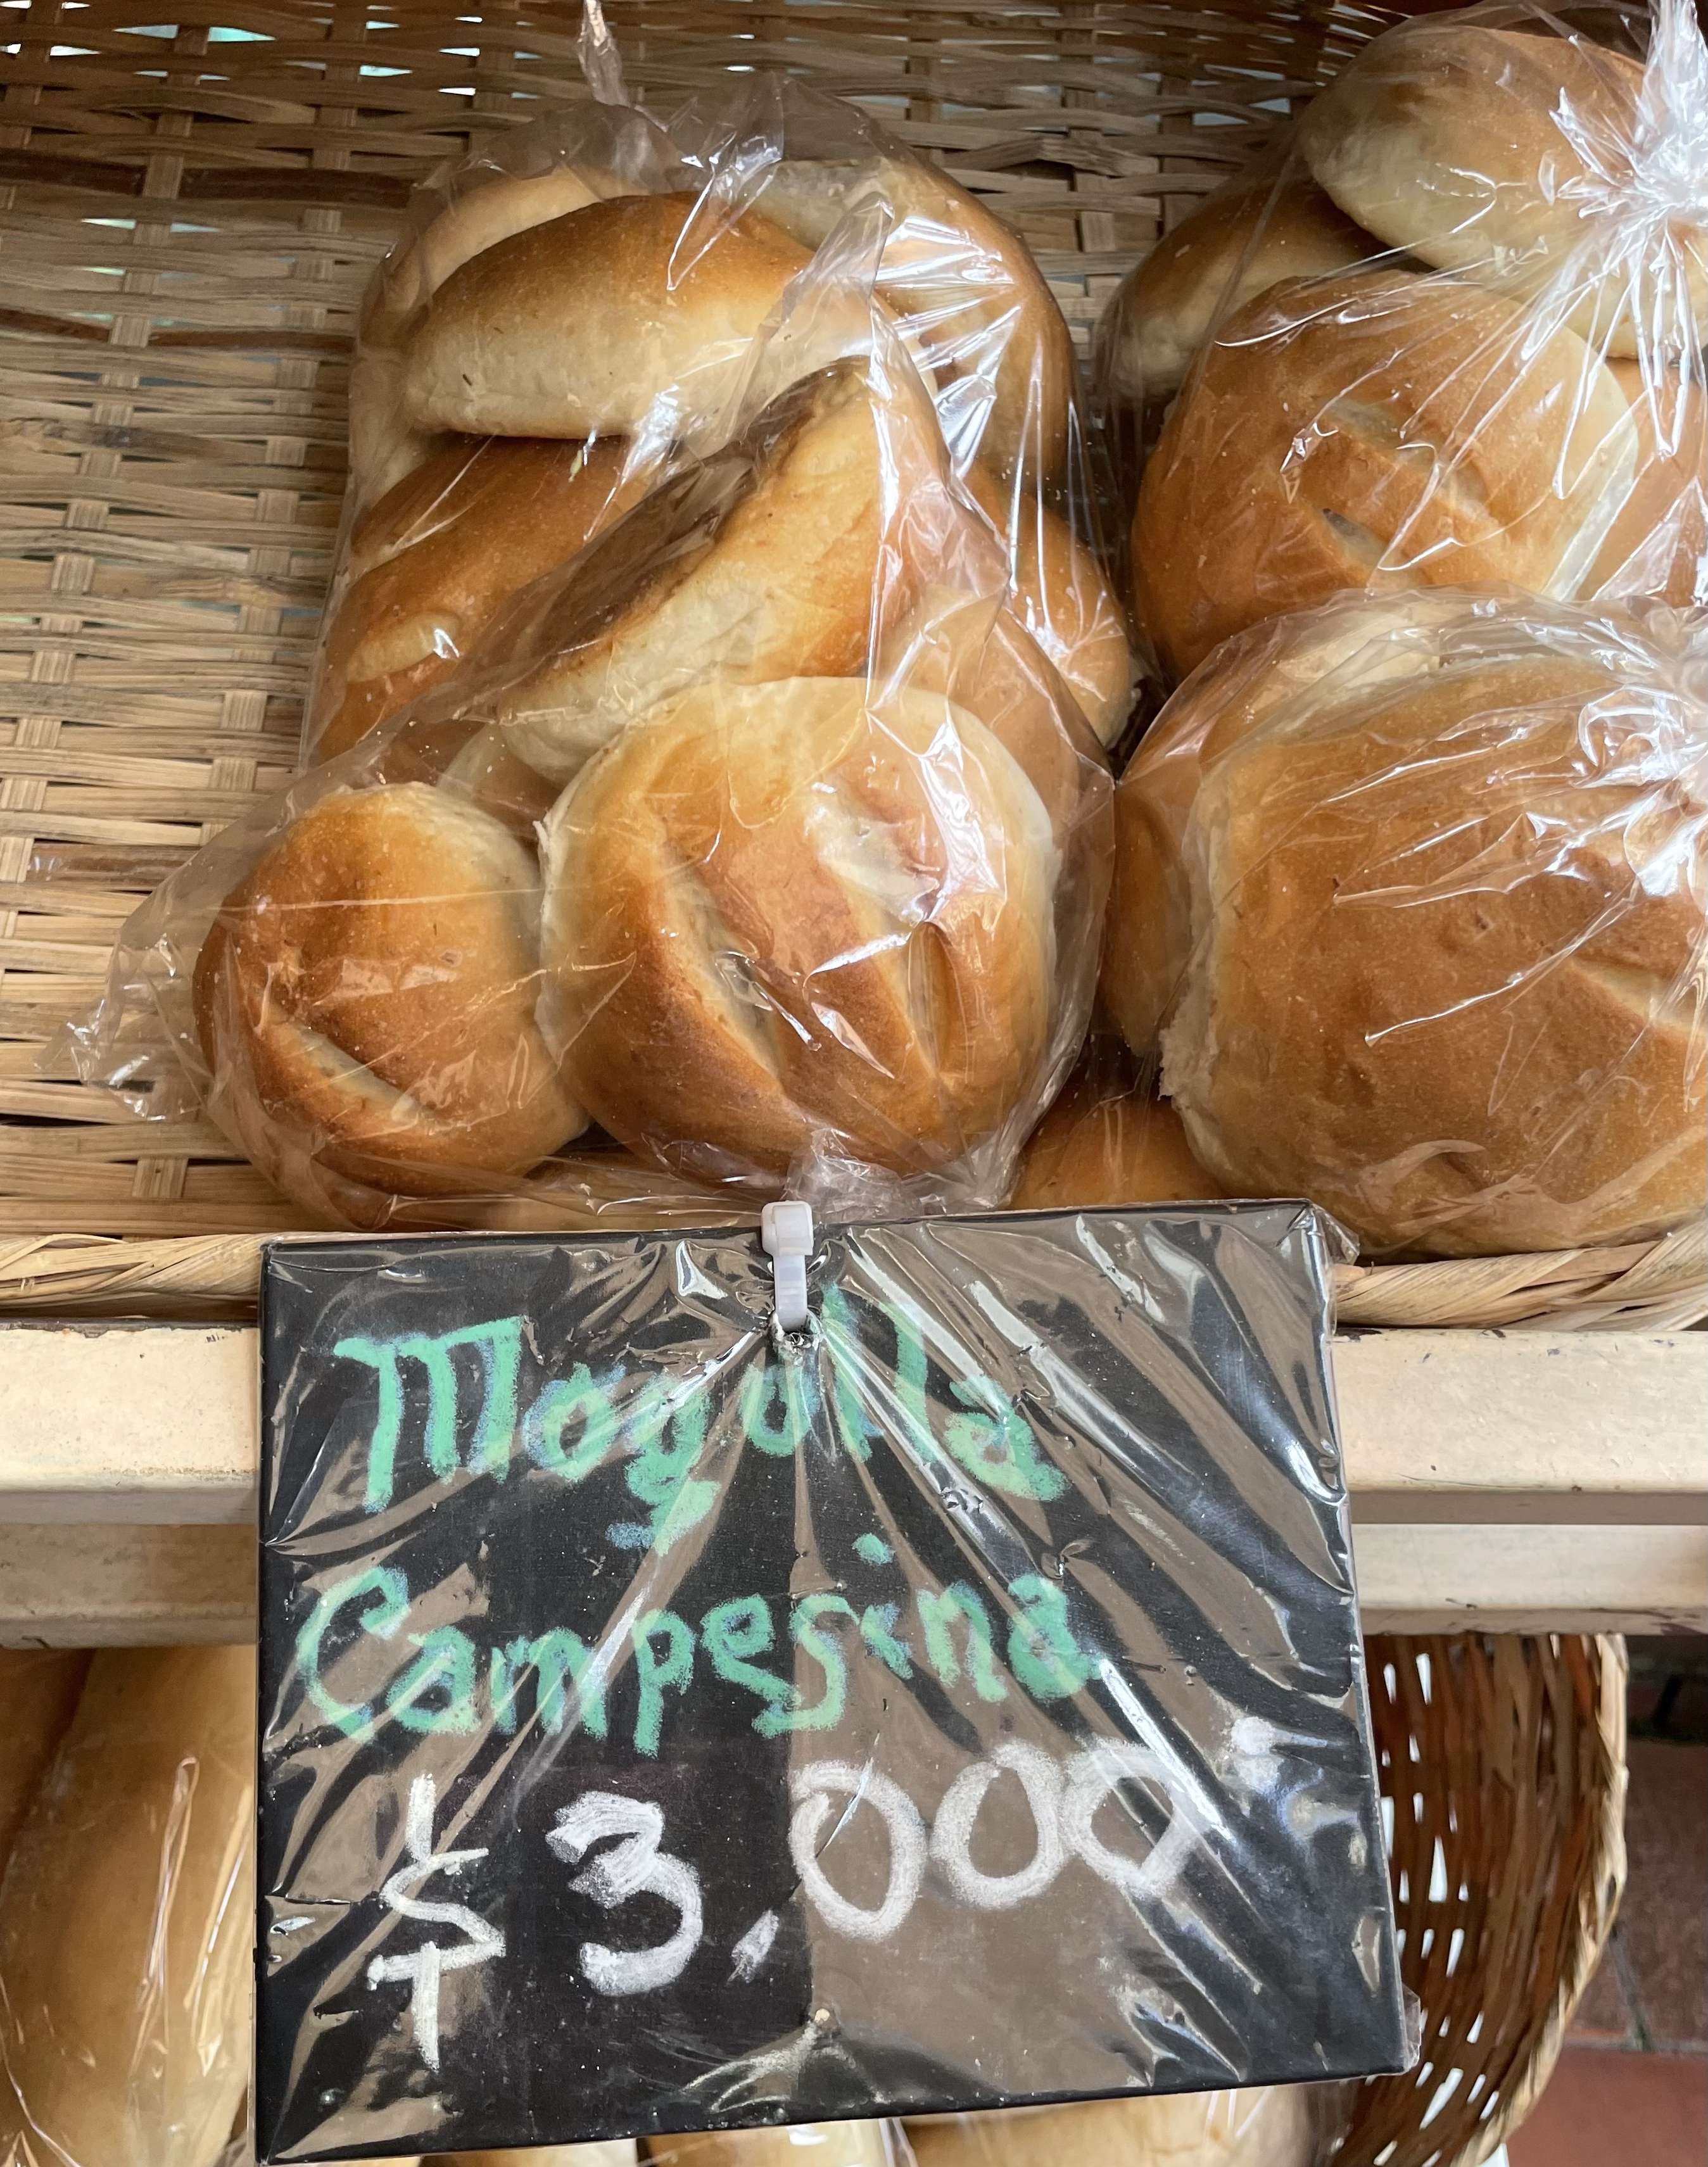 Mogolla
Campesina
$3,000=